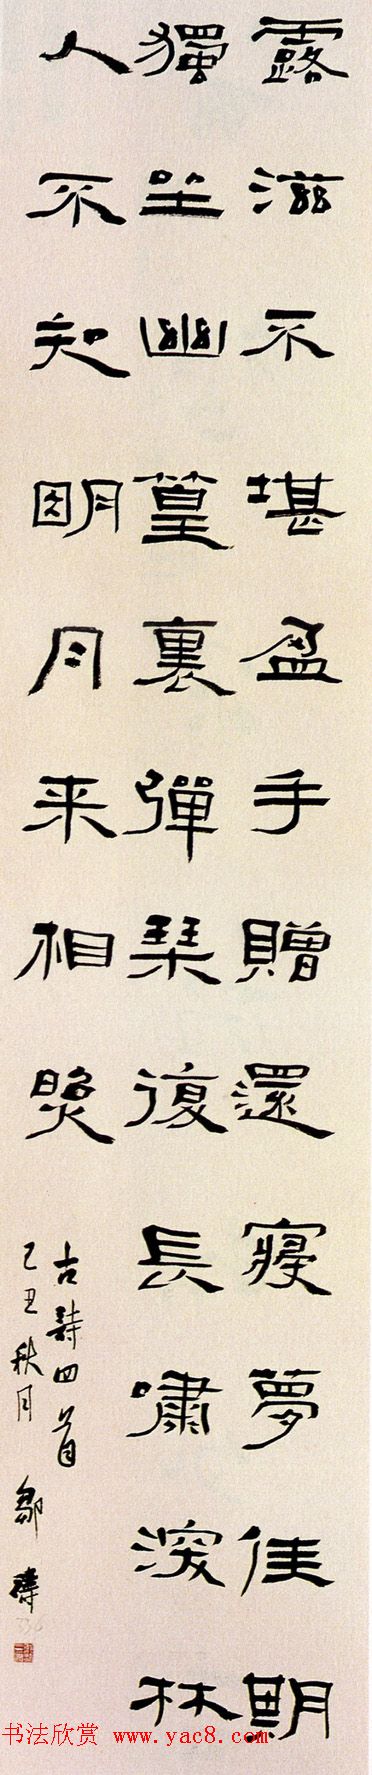 露滋不堪盈手贈還寢夢佳期
獨坐幽篁裏彈琴復長嘯深林
人不知明月来相照
古詩四首
己丑秋月 鄒濤
书法欣赏 www.yac8.com